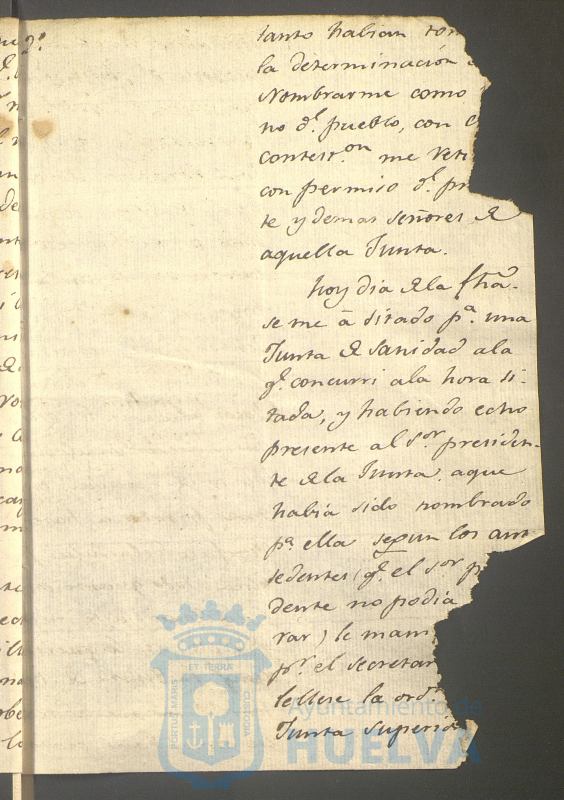 tanto habian tom
la determinación
Nombrarme como
no d.l pueblo, con
contest.on me reti
con permiso d.l pr
te y demas señores de
aquella Junta.
hoy dia de la fha.
se me á sitado p.a una
Junta de Sanidad ala
q.e concurri ala hora si-
tada, y habiendo echo
presente al s.or presiden-
te de la Junta aque
habia sido nombrado
p.a ella segun los ant
sedentes (q.e el s.or p
dente no podia
rar) le mani
p.r el secretar
lellese la ord.n
Junta Superio
PORTUS MARIS
ET TERRÆ
CUSTODIA
Ayuntamiento de
HUELVA